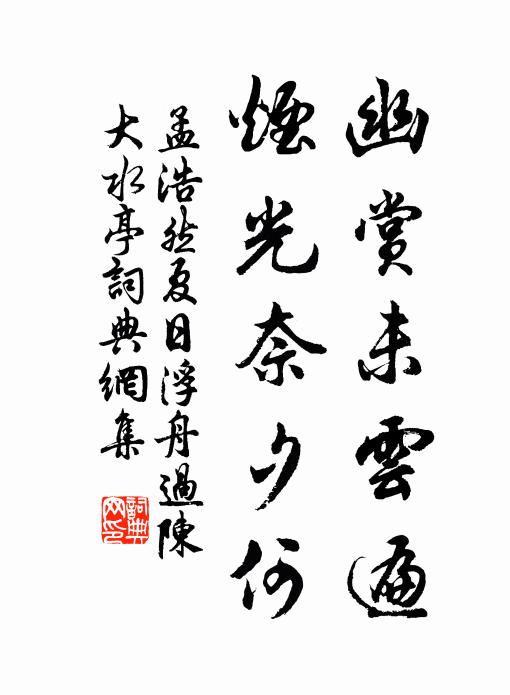 幽賞未雲遍
煙光奈夕何
孟浩然夏日浮舟過陳
大水亭詞典網集
詞典網印